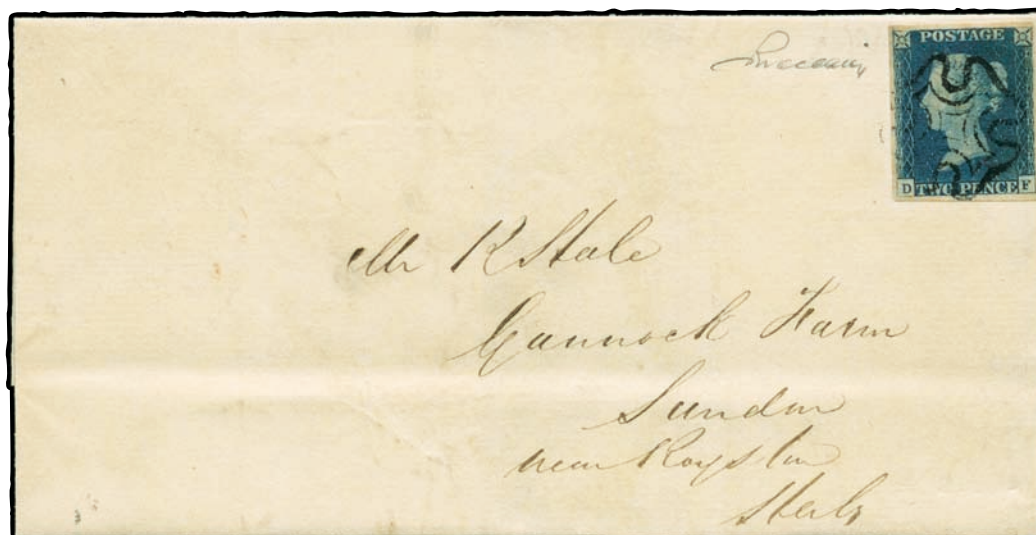 POSTAGE
D TWO PENCE F
Mr R Hale
Gannock Farm
Sandon
near Royston
Herts